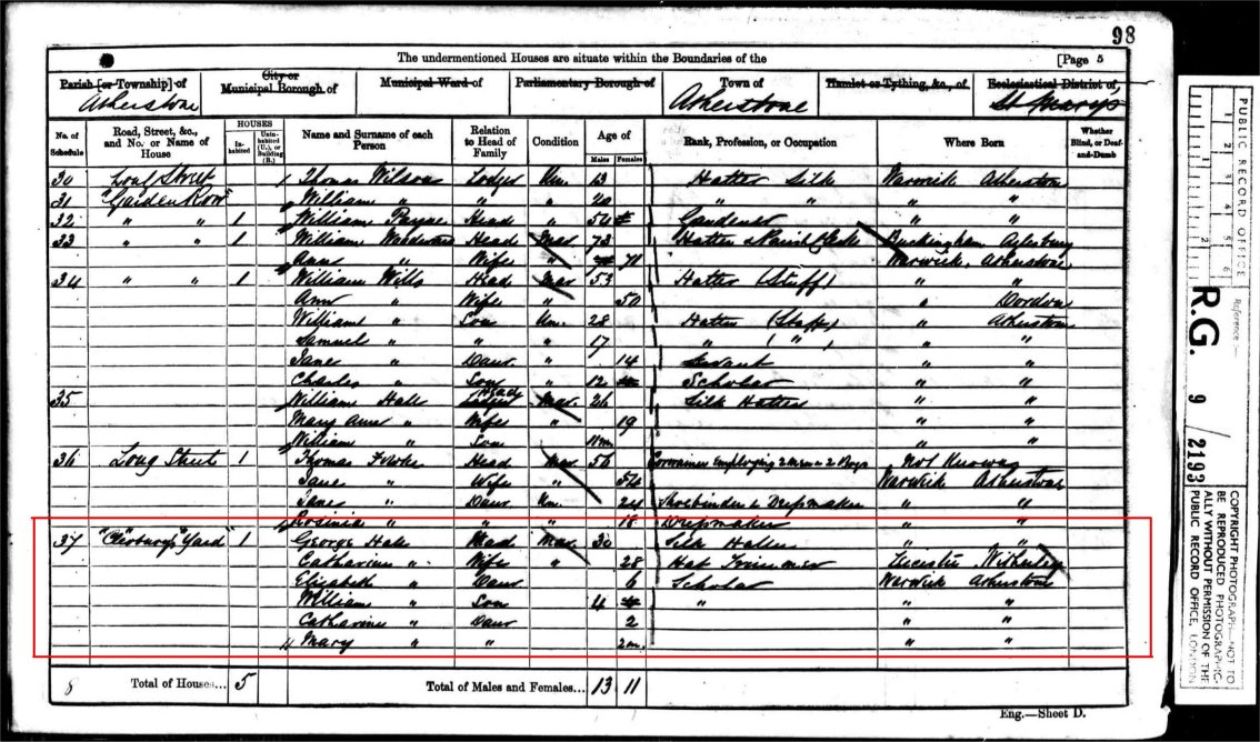 98
The undermentioned Houses are situate within the Boundaries of the [Page 5
Parish [or Township] of City or Municipal Borough of Municipal Ward of Parliamentary Borough of Town of Hamlet or Tything, &c., of Ecclesiastical District of,
Atherstone Atherstone St Marys
No. of Schedule Road, Street, &c., and No. or Name of House HOUSES Inhabited Uninhabited (U.), or Building (B.) Name and Surname of each Person Relation to Head of Family Condition Age of Males Females Rank, Profession, or Occupation Where Born Whether Blind, or Deaf-and-Dumb
30 Long Street Thomas Wilson Lodger Un. 13 Hatter Silk Warwick Atherstone
31 "Garden Row" William " " " 20 " " " "
32 " " 1 William Payne Head " 54 Gardener " "
33 " " 1 William Woodward Head Mar 73 Hatter & Parish Clerk Buckingham Aylesbury
Anne " Wife " 71 Warwick, Atherstone
34 " " 1 William Wills Head Mar 53 Hatter (Stuff) " "
Ann " Wife " 50 " Dordon
William " Son Un. 28 Hatter (Stuff) " Atherstone
Samuel " " " 17 " ( " ) " "
Jane " Daur. " 14 Servant " "
Charles " Son " 12 Scholar " "
35 William Hall Head Mar 26 Silk Hatter " "
Mary Ann " Wife " 19 " "
William " Son 11m " "
36 Long Street 1 Thomas Head Mar 56 Cordwainer Employing 2 men & 2 Boys Not Known
Jane " Wife " 54 Warwick Atherstone
" Daur Un. 24 Shoebinder & Dressmaker " "
Rosinia " " " 18 Dressmaker " "
37 Yard" 1 George Hall Head Mar 30 Silk Hatter " "
Catharine " Wife " 28 Hat Trimmer Leicester Witherley
Elizabeth " Daur 6 Scholar Warwick Atherstone
William " Son 4 " " "
Catharine " Daur 2 " "
Mary " " 2m. " "
8 Total of Houses... 5 Total of Males and Females... 13 11
Eng.—Sheet D.
PUBLIC RECORD OFFICE
1 2 3 4 5 6
1 2
Reference :-
R.G. 9 / 2193
COPYRIGHT PHOTOGRAPH—NOT TO BE REPRODUCED PHOTOGRAPHICALLY WITHOUT PERMISSION OF THE PUBLIC RECORD OFFICE, LONDON